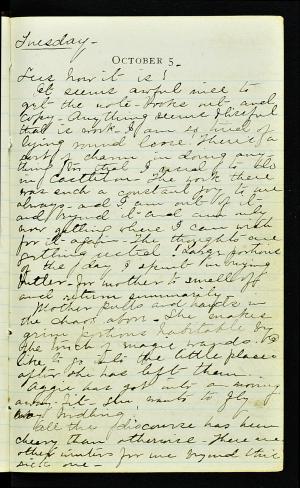 Tuesday -
OCTOBER 5
Sees how it is!
It seems awful nice to
get the note-books out - and
copy - Anything seems blissful
that is work - I am so tired of
lying round loose. There's a
sort of charm in doing any-
thing for that I used to do
in The work there
was such a constant joy to me
always - and I am out of it -
and beyond it - and am only
now getting where I can wish
for it - again - The thoughts are
getting uected! Large portions
of the day I spent in buying
Butter - for mother to smell of
and return summarily -
Mother puts out hands in
the chaos afor - She makes
grim portions habitable by
the touch of magic wands. I
like to go into the little places
after she has left them.
Aggie has got into a
away fit - she wants to fly
bundling.
All the discourse has been
cheery than otherwise - There are
other winters for me beyond this
sick one -